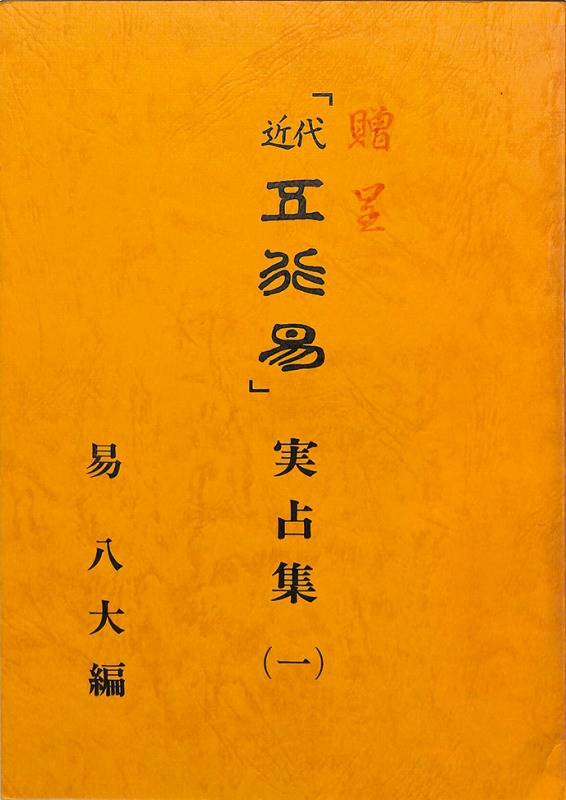 贈呈
「近代五行易」実占集（一）
易八大編